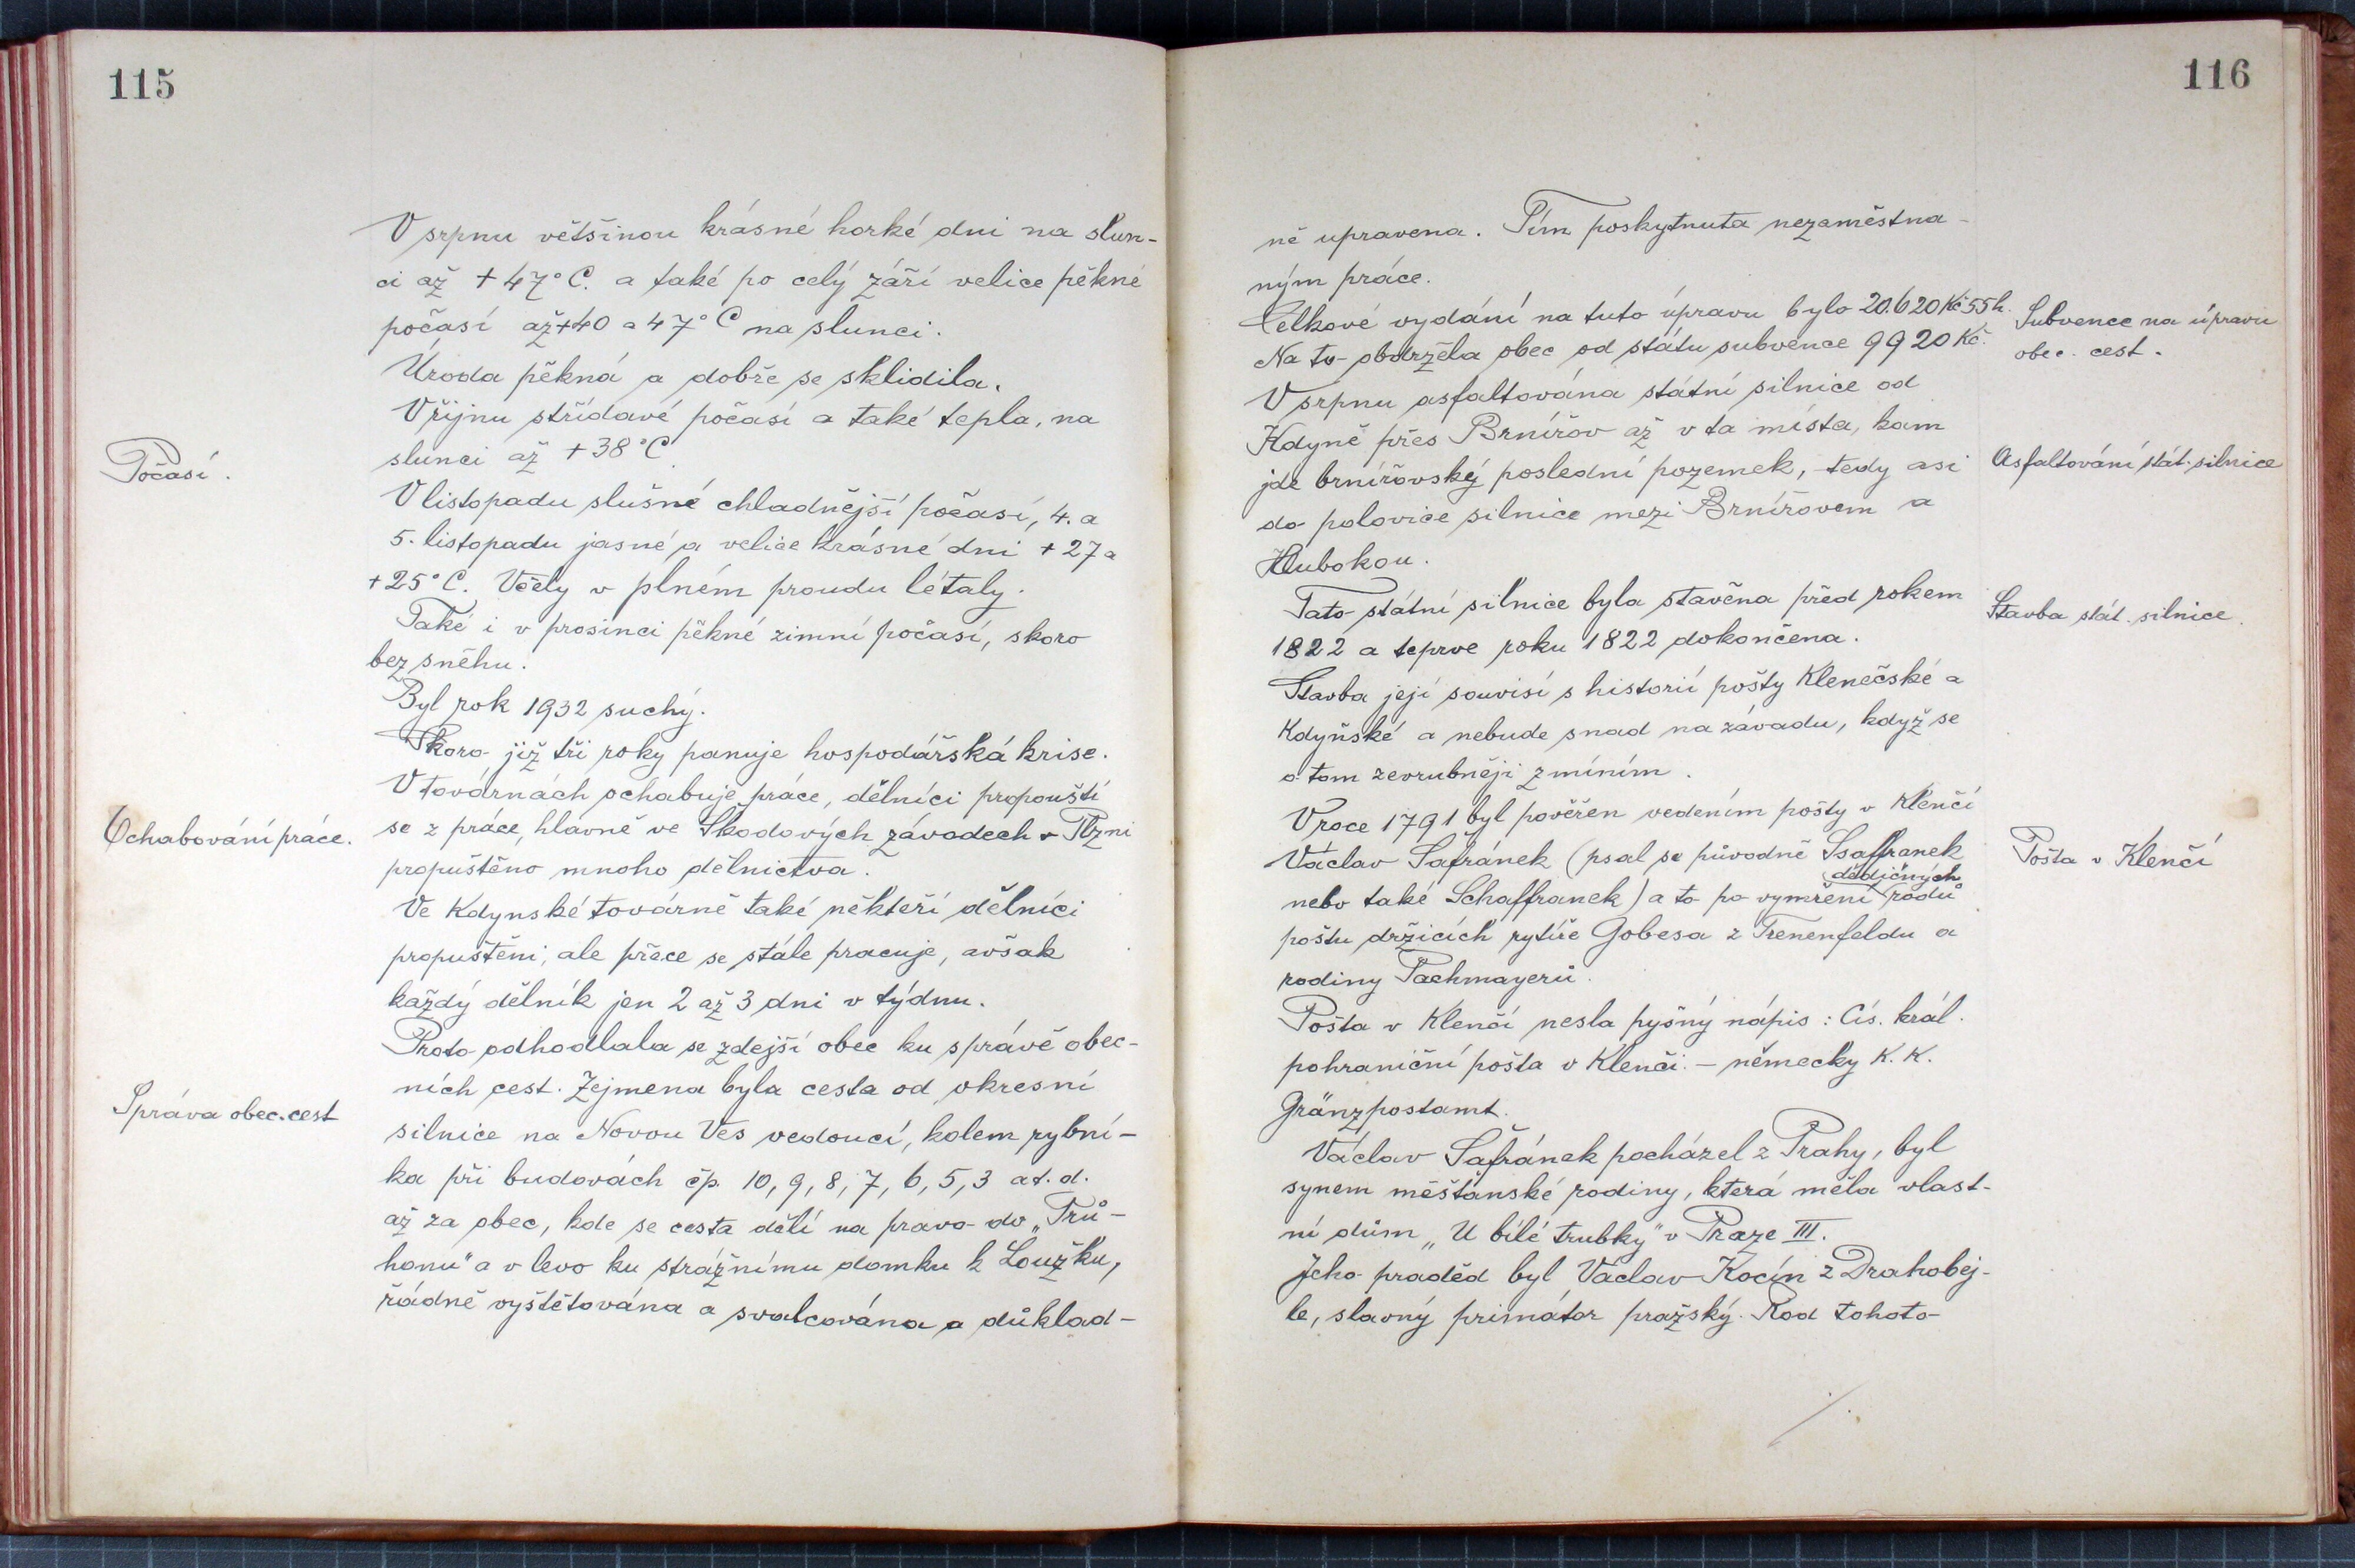 115
V srpnu většinou krásné horké dni na slun-
ci až + 47° C. a také po celý září velice pěkné
počasí až +40 a 47° C na slunci.
Úroda pěkná a dobře se sklidila.
V říjnu střídavé počasí a také tepla, na
slunci až + 38° C
Počasí.
V listopadu slušné chladnější počasí, 4. a
5. listopadu jasné a velice krásné dni + 27 a
+ 25° C. Včely v plném proudu létaly.
Také i v prosinci pěkné zimní počasí, skoro
bez sněhu.
Byl rok 1932 suchý.
Skoro již tři roky panuje hospodářská krise.
V továrnách ochabuje práce, dělníci propouští
Ochabování práce.
se z práce, hlavně ve Škodových závodech v Plzni
propuštěno mnoho dělnictva.
Ve Kdynské továrně také někteří dělníci
propuštěni, ale přece se stále pracuje, avšak
každý dělník jen 2 až 3 dni v týdnu.
Proto odhodlala se zdejší obec ku správě obec-
ních cest. Zejmena byla cesta od okresní
Správa obec. cest
silnice na Novou Ves vedoucí, kolem rybní-
ka při budovách čp. 10, 9, 8, 7, 6, 5, 3 at. d.
až za obec, kde se cesta dělí na pravo do „Trů-
honu" a v levo ku strážnímu domku k Loužku,
řádně vyštětována a svalcována a důklad-
116
ně upravena. Tím poskytnuta nezaměstna-
ným práce.
Celkové vydání na tuto úpravu bylo 20.620 Kč 55 h.
Na to obdržela obec od státu subvence 9920 Kč.
Subvence na úpravu
obec. cest.
V srpnu asfaltována státní silnice od
Kdyně přes Brnířov až v ta místa, kam
jde brnířovský poslední pozemek, tedy asi
Asfaltování stát. silnice
do polovice silnice mezi Brnířovem a
Hlubokou.
Tato státní silnice byla stavěna před rokem
Stavba stát. silnice.
1822 a teprve roku 1822 dokončena.
Stavba její souvisí s historií pošty Klenečské a
Kdyňské a nebude snad na závadu, když se
o tom zevrubněji zmíním.
V roce 1791 byl pověřen vedením pošty v Klenčí
Václav Šafránek (psal se původně Ssaffranek
Pošta v Klenčí
dědičných
nebo také Schaffranek) a to po vymření rodů
poštu držících rytíře Gobesa z Trenenfeldu a
rodiny Pachmayerů.
Pošta v Klenčí nesla pyšný nápis: Cís. král.
pohraniční pošta v Klenči. – německy K. K.
Gränzpostamt.
Václav Šafránek pocházel z Prahy, byl
synem měšťanské rodiny, která měla vlast-
ní dům „U bílé trubky" v Praze III.
Jeho praděd byl Václav Kocín z Drahobej-
le, slavný primátor pražský. Rod tohoto